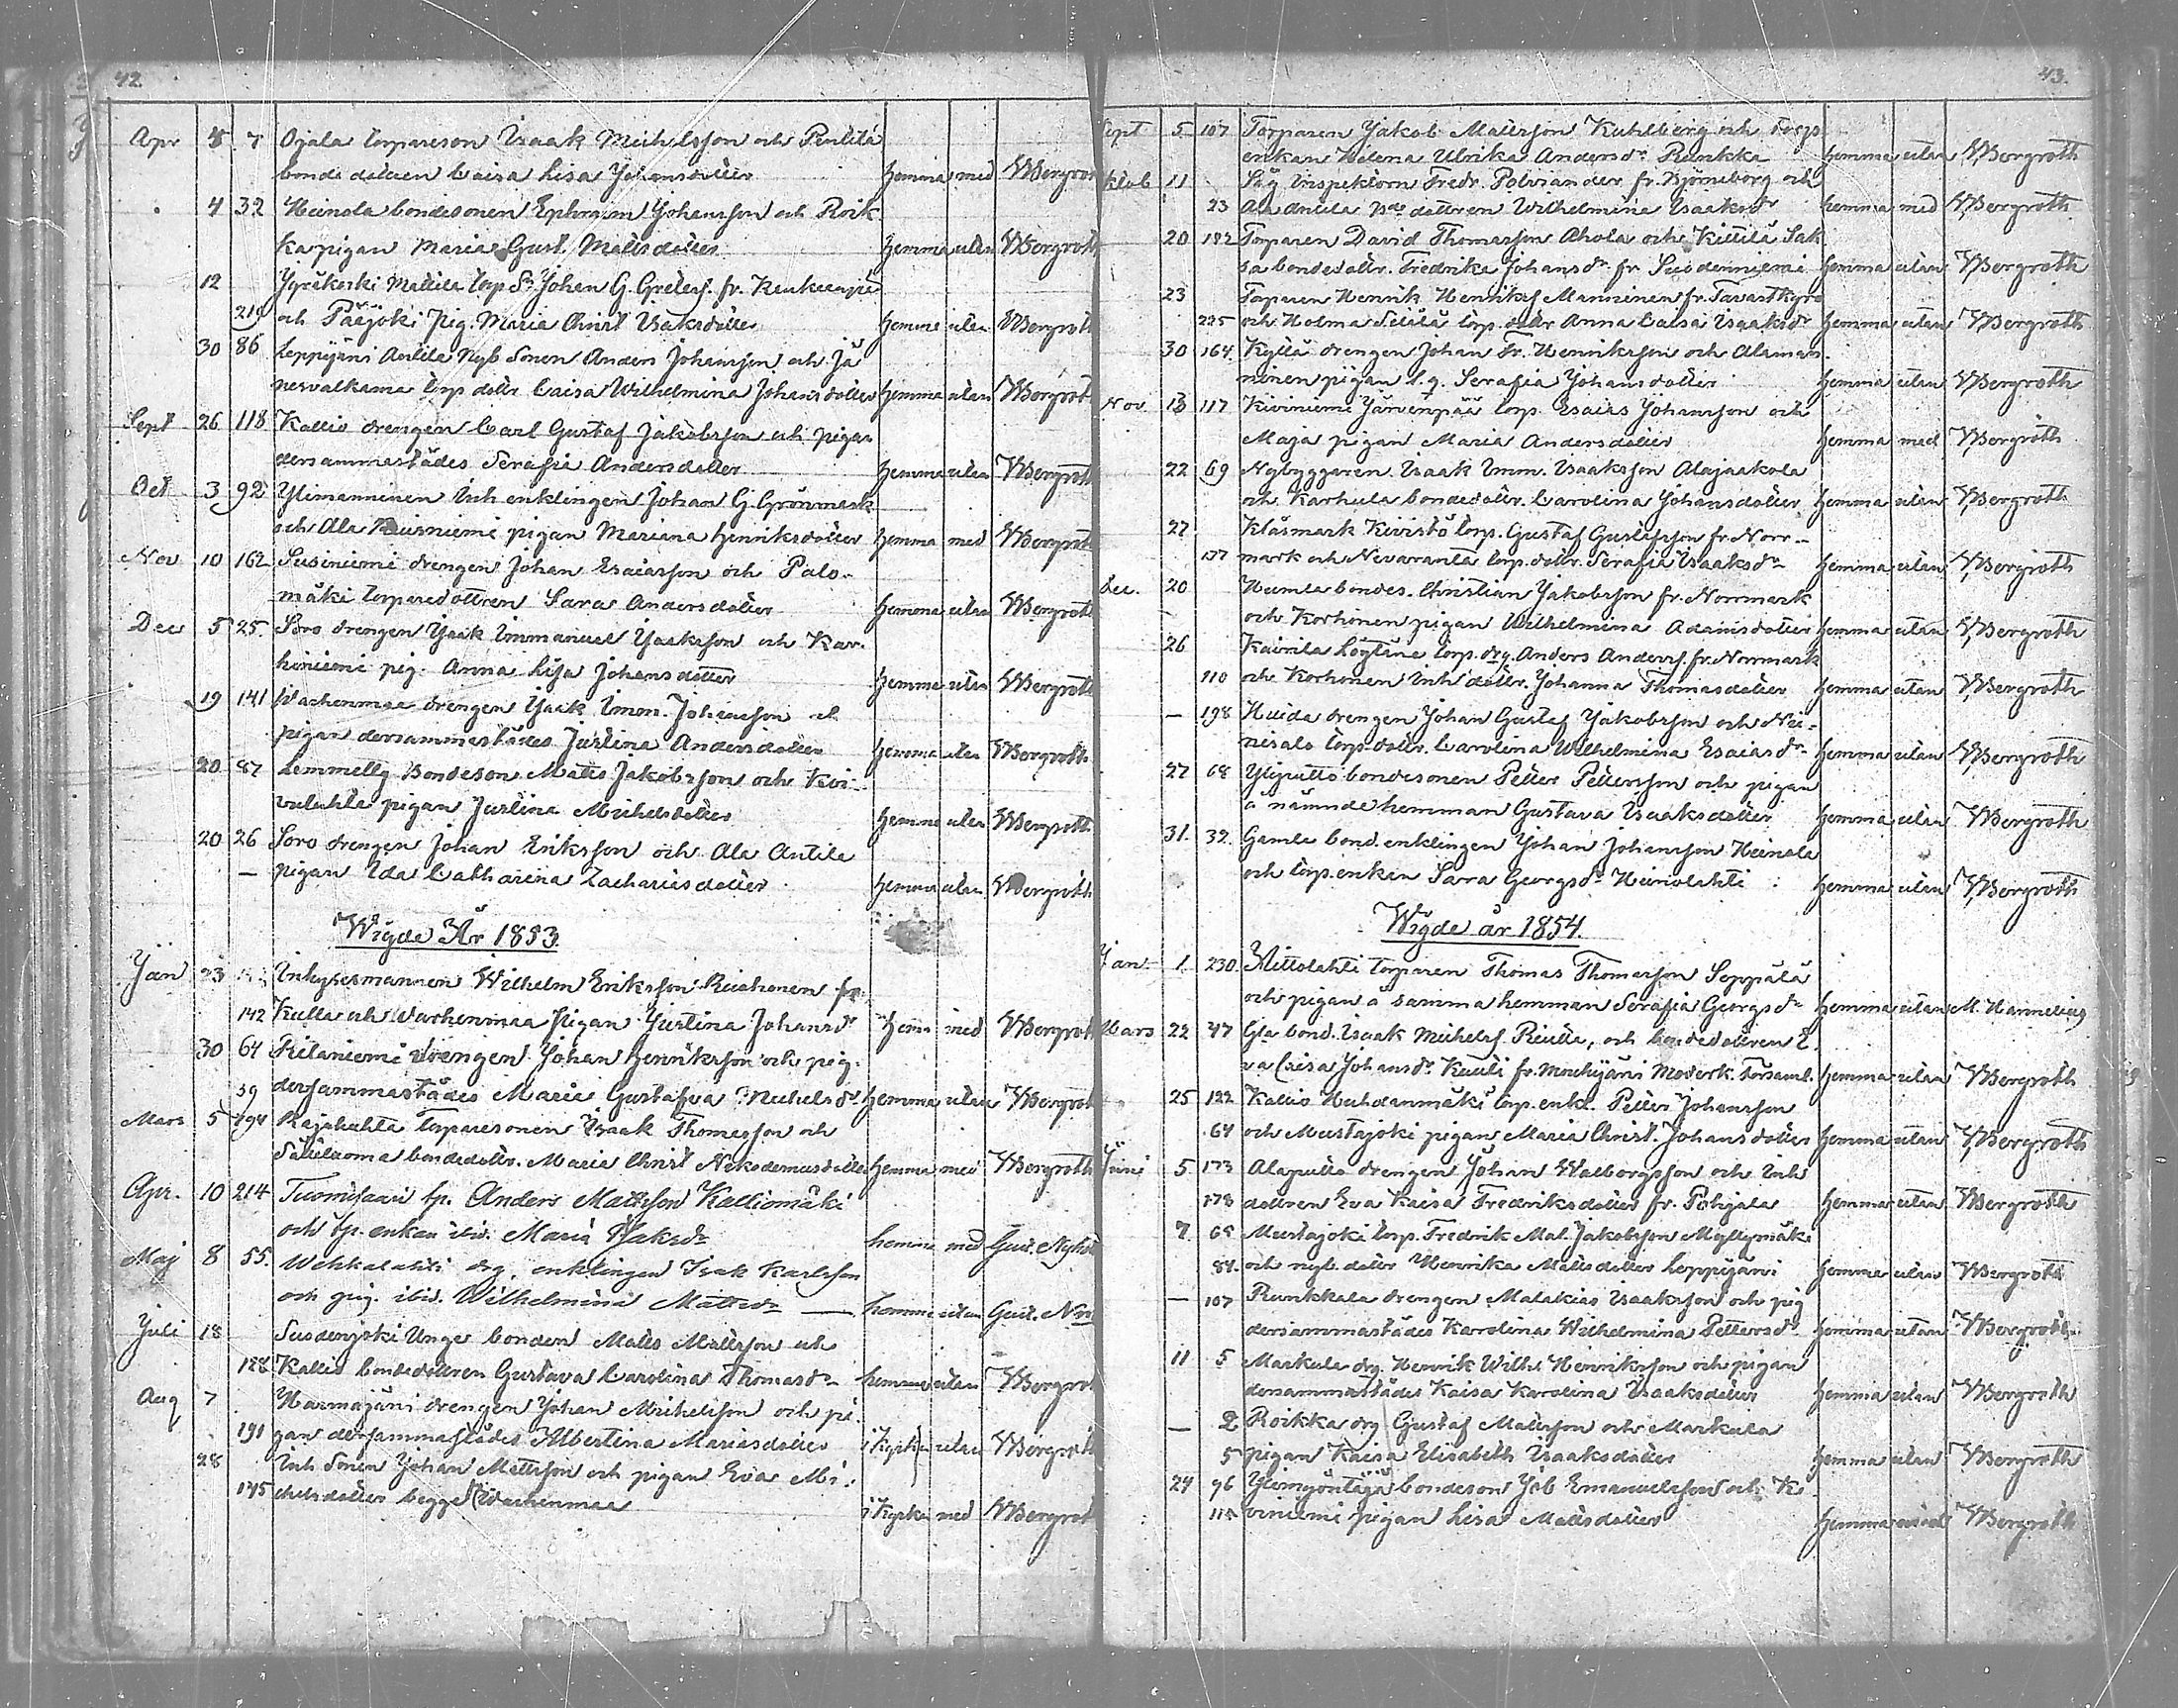 42.
Apr 4 7 Ojala torpareson Isaak Michelsson och Penttilä
bonde dottren Caisa Lisa Johansdotter hemma med WBergroth
4 32 Heinola bondesonen Ephraim Johansson och Roik
ka pigan Maria Gust. Mattsdotter hemma utan WBergroth
12 Mattila torp Sn Johan G. fr.
219 och Pääjoki pig. Maria Christ Isaksdotter hemma utan WBergroth
30 86 Leppijärvi Anttila Nyb Sonen Anders Johansson och Jä
nesvalkama torp dottr Caisa Wilhelmina Johansdotter hemma utan WBergroth
Sept 26 118 Kallio drengen Carl Gustaf Jakobsson och pigan
dersammastädes Serafia Andersdotter hemma utan WBergroth
Oct 3 92 Ylimanninen Inh enklingen Johan G. Grönmark
och Ala pigan Mariana Henriksdotter hemma med WBergroth
Nov 10 162 Susiniemi drengen Johan Esaiasson och Palo-
mäki torparedottren Sara Andersdotter hemma utan WBergroth
Dec 5 25. Soro drengen Isaak Immanuel Isaksson och Kar-
hiniemi pig. Anna Lisa Johansdotter hemma utan WBergroth
19 141 Wachenmaa drengen Isaak Imm. Johansson et
pigan dersammastädes Justina Andersdotter hemma utan WBergroth
20 87 Lemmelly Bondeson Matts Jakobsson och Kivi-
vuluhta pigan Justina Michelsdotter hemma utan WBergroth
20 26 Soro drengen Johan Eriksson och Ala Antila
— pigan Ida Catharina Zachariasdotter hemma utan WBergroth
Wigde År 1853.
Jan 23 Inhysesmannen Wilhelm Eriksson fr.
142 Kulla och Wachenmaa pigan Justina Johansdr hem med WBergroth
30 64 Riitaniemi drengen Johan Henriksson och pig.
39 dersammastädes Maria Gustafva Michelsdr hemma utan WBergroth
Mars 5 194 Rajalahta Torparesonen Isaak Thomasson och
bondedottr. Maria Christ Nekodemusdotter hemma med WBergroth
Apr. 10 214 Tuomisaari tp. Anders Mattsson Kalliomäki
och tp. enkan ibid. Maria Isaksdr hemma med Gust.
Maj 8 55. Wehkalahti drg. enklingen Isak Karlsson
och pig. ibid. Wilhelmina Mattsdr — hemma utan Gust.
Juli 18 Susdenjoki Unge bonden Matts Mattsson och
128 Kallio bondedottren Gustava Carolina Thomasdr hemma utan WBergroth
Aug 7 Harmajärvi drengen Johan Michelsson och pi-
191 gan dersammastädes Albertina Mariasdotter i Kyrkan utan WBergroth
28 Inh Sonen Johan Mattsson och pigan Eva Mi-
145 chelsdotter begge Wachenmaa i Kyrkan med WBergroth
43.
Sept 5 107 Torparen Jakob Mattsson Kuhlberg och torp
enkan Helena Ulrika Andersdr Runkka hemma utan WBergroth
Oktob 11 Såg Inspektorn Fredr. Polviander fr. Björneborg och
23 Ala Antila Bde dottren Wilhelmina Isaaksdr hemma med WBergroth
20 192 Torparen David Thomasson Ahola och Kittilä Sak
sa bondedottr. Fredrika Johansdr fr. Susdenniemi hemma utan WBergroth
23 Torparen Henrik Henriksf Manninen fr. Tavastkyro
225 och Holma Seitiä torp. dottr Anna Caisa Isaaksdr hemma utan WBergroth
30 164. Kyllä drengen Johan Fr. Henriksson och Alaman-
ninen pigan l. q. Serafia Johansdotter hemma utan WBergroth
Nov. 13 117 Kiviniemi Järvenpää torp. Esaias Johansson och
Maja pigan Maria Andersdotter hemma med WBergroth
22 69 Nybyggaren Isaak Imm. Isaaksson Alajaakola
och Karhula bondedottr. Carolina Johansdotter hemma utan WBergroth
27 Klåsmark Kivistö torp. Gustaf Gustafsson fr. Norr-
137 mark och Nevaranta torp. dottr. Serafia Isaaksdr hemma utan WBergroth
Dec. 20 Humla bondes. Christian Jakobsson fr. Norrmark
och Korhonen pigan Wilhelmina Adamsdotter hemma utan WBergroth
26 Kairila Högtäne torp. drg. Anders Anderss. fr. Norrmark
110 och Korhonen Inh dottr. Johanna Thomasdotter hemma utan WBergroth
— 198 Huida drengen Johan Gustaf Jakobsson och Nii-
nisalo torp. dottr. Carolina Wilhelmina Esaiasdr hemma utan WBergroth
27 68 Yliputto bondesonen Petter Pettersson och pigan
å nämnde hemman Gustava Isaaksdotter hemma utan WBergroth
31. 32. Gamle bond. enklingen Johan Johansson Heinola
och torp. enkan Sara Georgsdr Heinolahti hemma utan WBergroth
Wigde år 1854.
Jan 1. 230. Kittolahti torparen Thomas Thomasson Seppälä
och pigan å samma hemman Serafia Georgsdr hemma utan M. Hannelius
Mars 22 47 Gla bond. Isaak Michelsf Reulla, och bondedottren E-
va Caisa Johansdr. Kuuli fr. Mouhijärvi Moderk. församl. hemma utan WBergroth
25 122 Kallio Huhdanmäki torp. enkl. Petter Johansson
64 och Mustajoki pigan Maria Christ. Johansdotter hemma utan WBergroth
Juni 5 173 Alaputto drengen Johan Walborgsson och Inh
178 dottren Eva Kaisa Fredriksdotter fr. Pohjala hemma utan WBergroth
7. 65 Mustajoki torp. Fredrik Mal. Jakobsson Myllymäki
84. och nyb. dottr Henrika Mattsdotter Leppijärvi hemma utan WBergroth
— 107 Runkkala drengen Malakias Isaaksson och pig
dersammastädes Karolina Wilhelmina Pettersdr hemma utan WBergroth
11 5 Markula drg. Henrik Wilh. Henriksson och pigan
dersammastädes Kaisa Karolina Isaaksdotter hemma utan WBergroth
— 2 Roikka drg Gustaf Mattsson och Markula
5 pigan Kaisa Elisabeth Isaaksdotter hemma utan WBergroth
24 96 bondeson Job Emanuelsson och Ki
115 viniemi pigan Lisa Mattsdotter hemma WBergroth